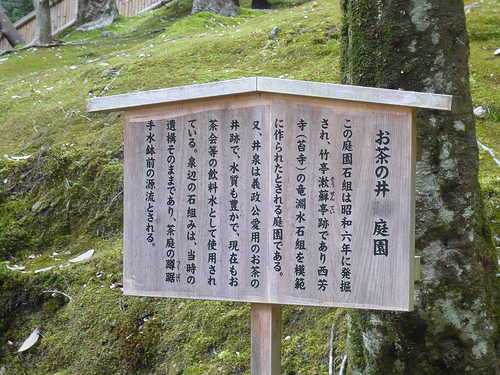 お茶の井　庭園
この庭園石組は昭和六年に発掘
され、竹亭漱蘇亭跡であり西芳
寺（苔寺）の竜淵水石組を模範
に作られたとされる庭園である。
又、井泉は義政公愛用のお茶の
井跡で、水質も豊かで、現在もお
茶会等の飲料水として使用され
ている。泉辺の石組みは、当時の
遺構そのままであり、茶庭の蹲踞
手水鉢前の源流とされる。